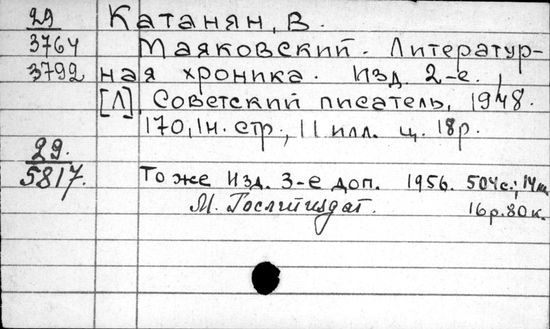 29 Катанян, В.
3764 Маяковский. Литератур-
3792 ная хроника. Изд. 2-е,
[Л] Советский писатель, 1948.
170, 1н. стр., 11 илл. ц. 18р.
29.
5817. То же Изд. 3-е доп. 1956. 504с.;
М. Гослитиздат. 16р.80к.